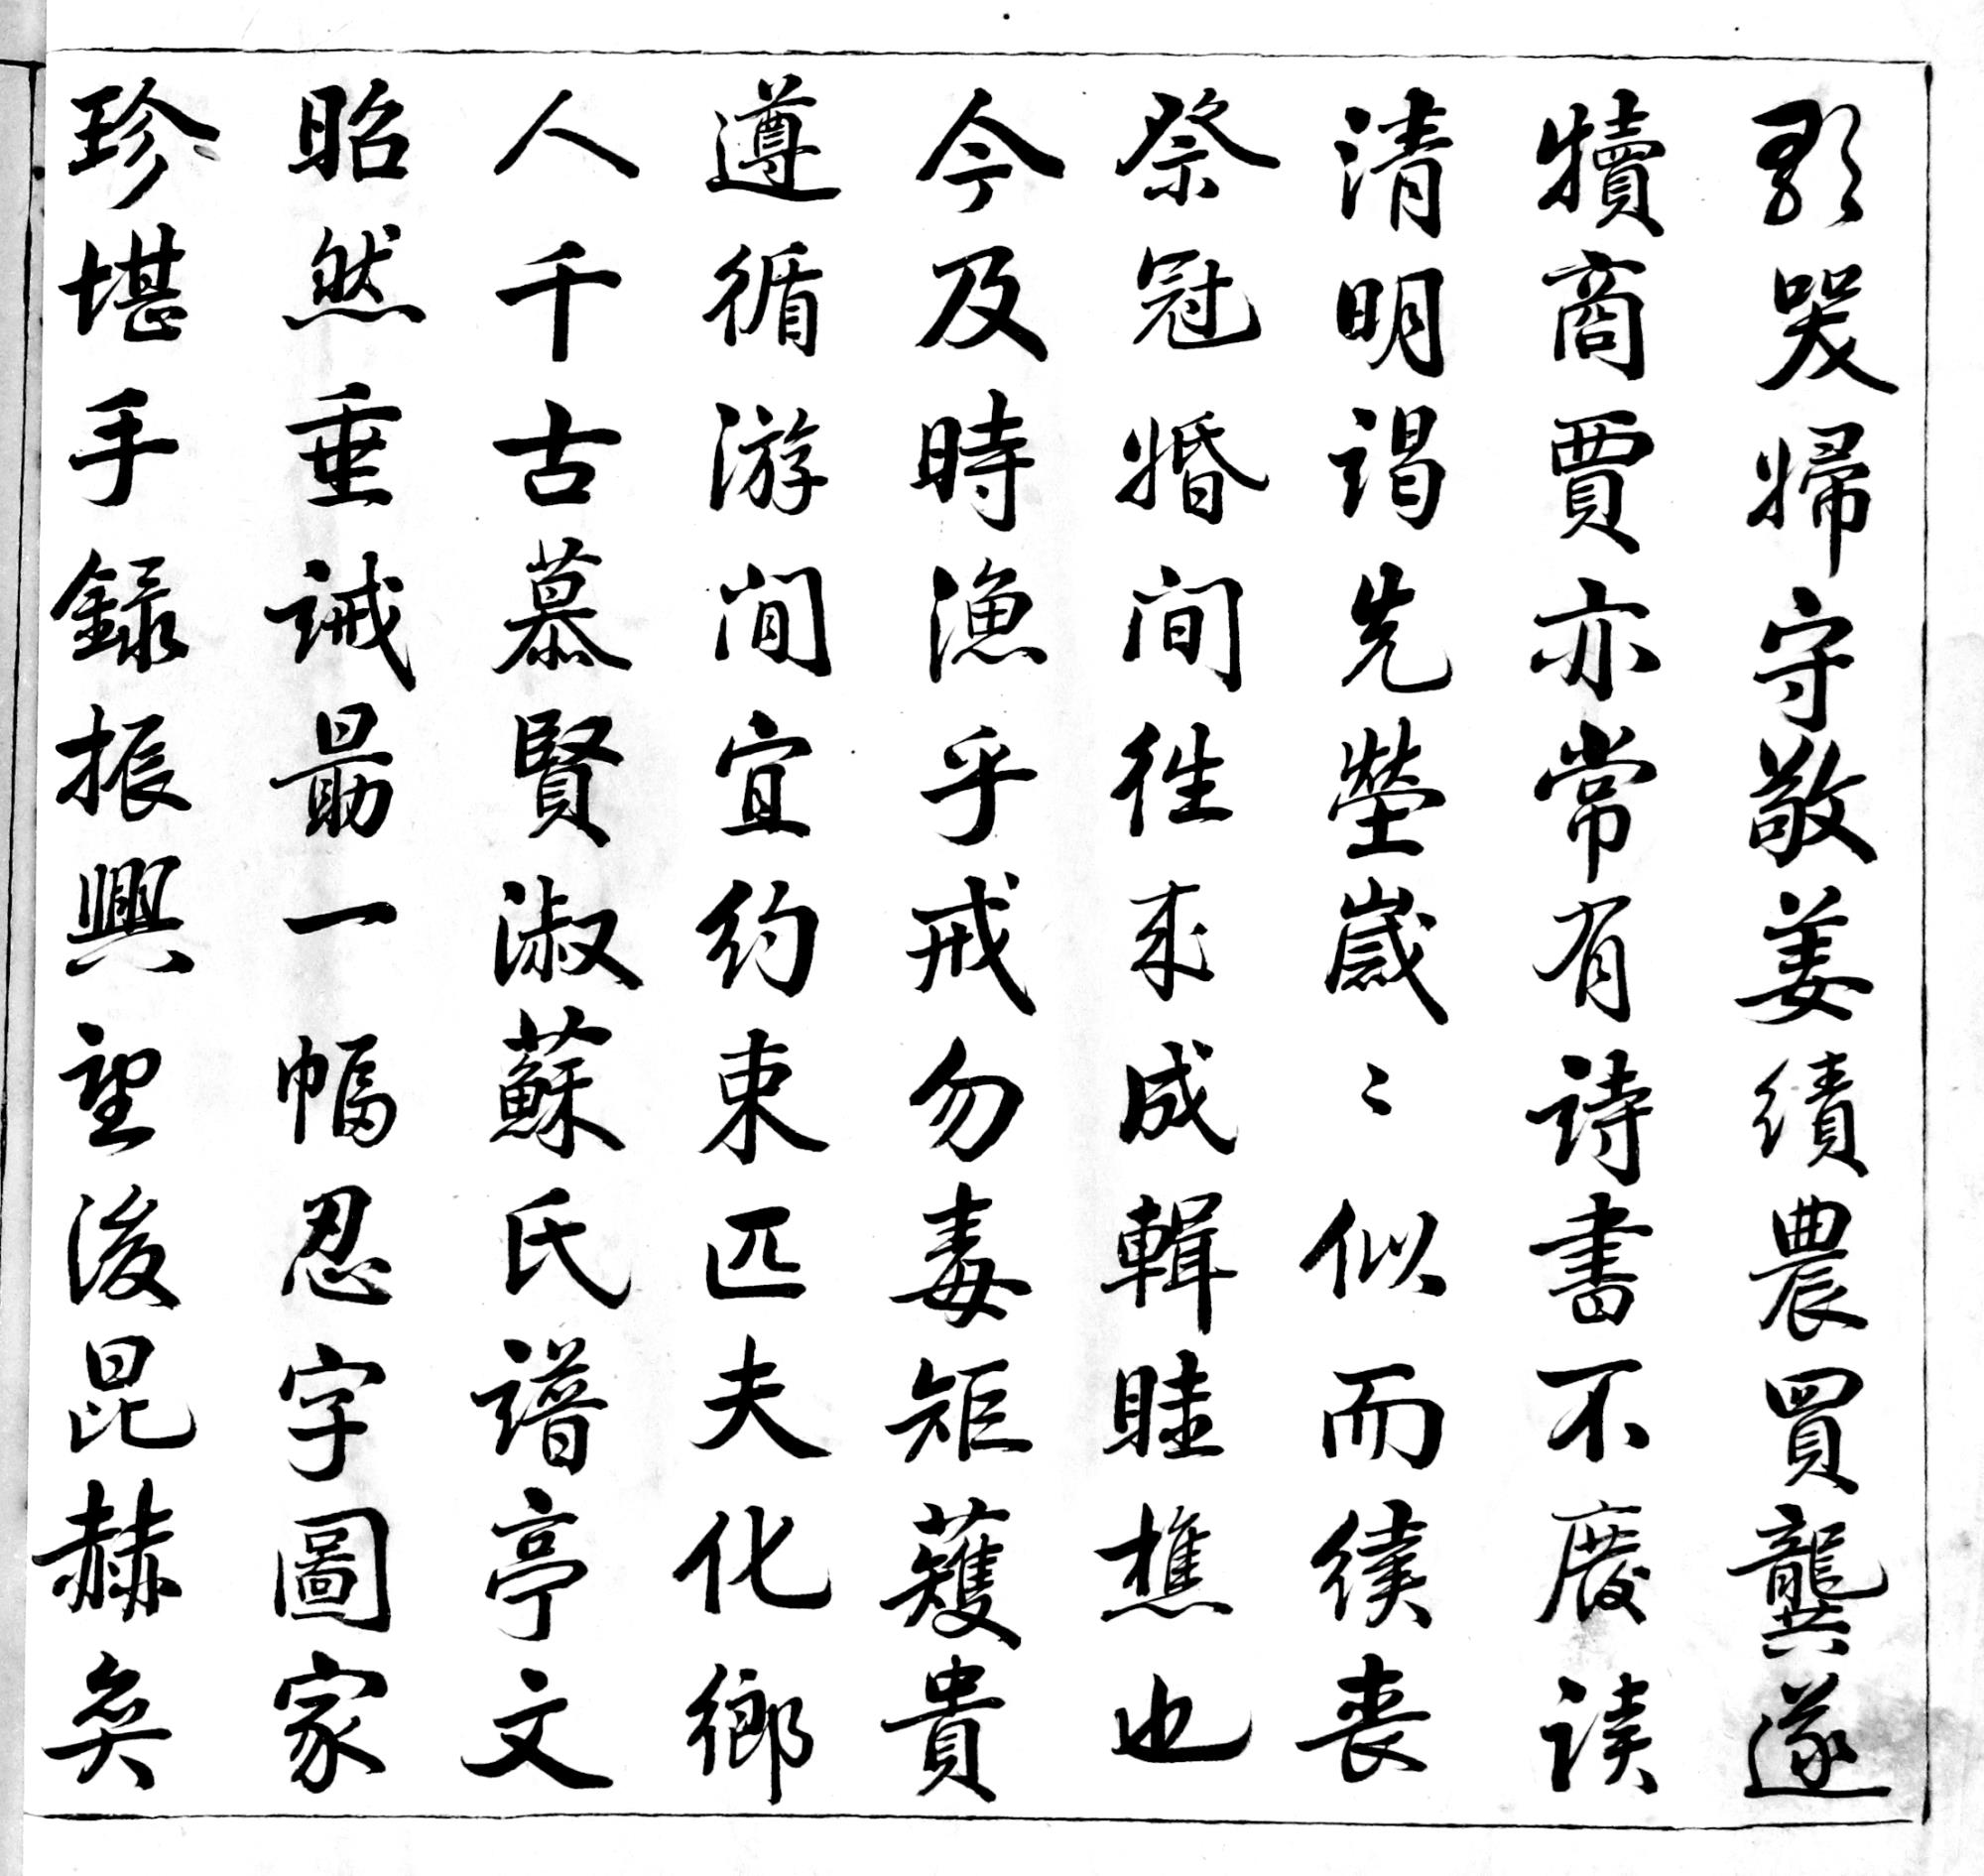 歌哭婦守敬姜績農買龔遂
犢商賈亦常有詩書不廢讀
清明謁先塋歲〻似而續喪
祭冠婚間往來成輯睦樵也
今及時漁乎戒勿毒矩矱貴
遵循游間宜約束匹夫化鄉
人千古慕賢淑蘇氏譜亭文
昭然垂誡勗一幅忍字圖家
珍堪手錄振興望後昆赫奕